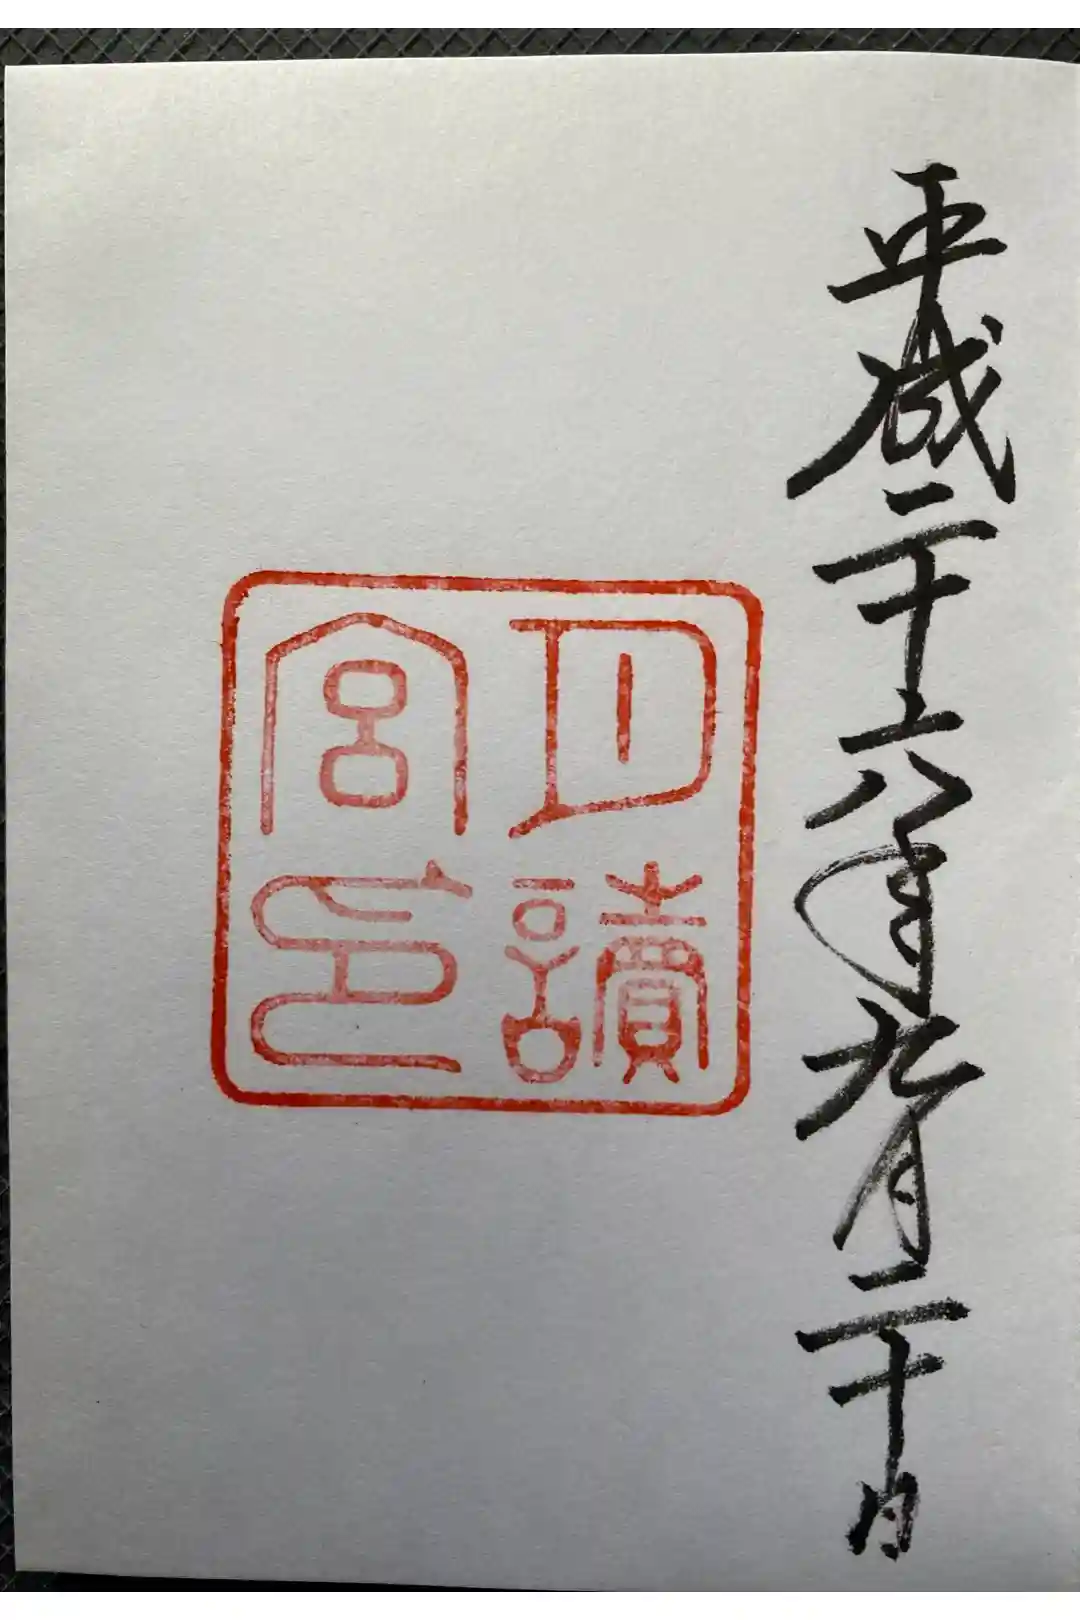 平成二十六年九月二十日
月讀
宮印